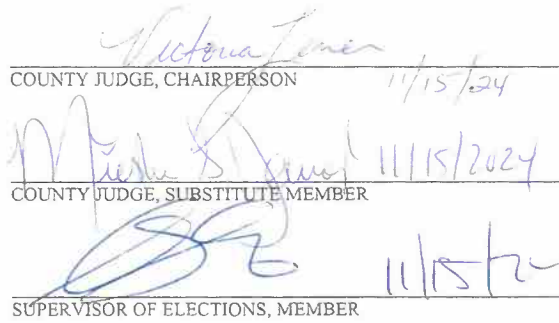 Victoria
COUNTY JUDGE, CHAIRPERSON 11/15/24
11/15/2024
COUNTY JUDGE, SUBSTITUTE MEMBER
11/15/2
SUPERVISOR OF ELECTIONS, MEMBER